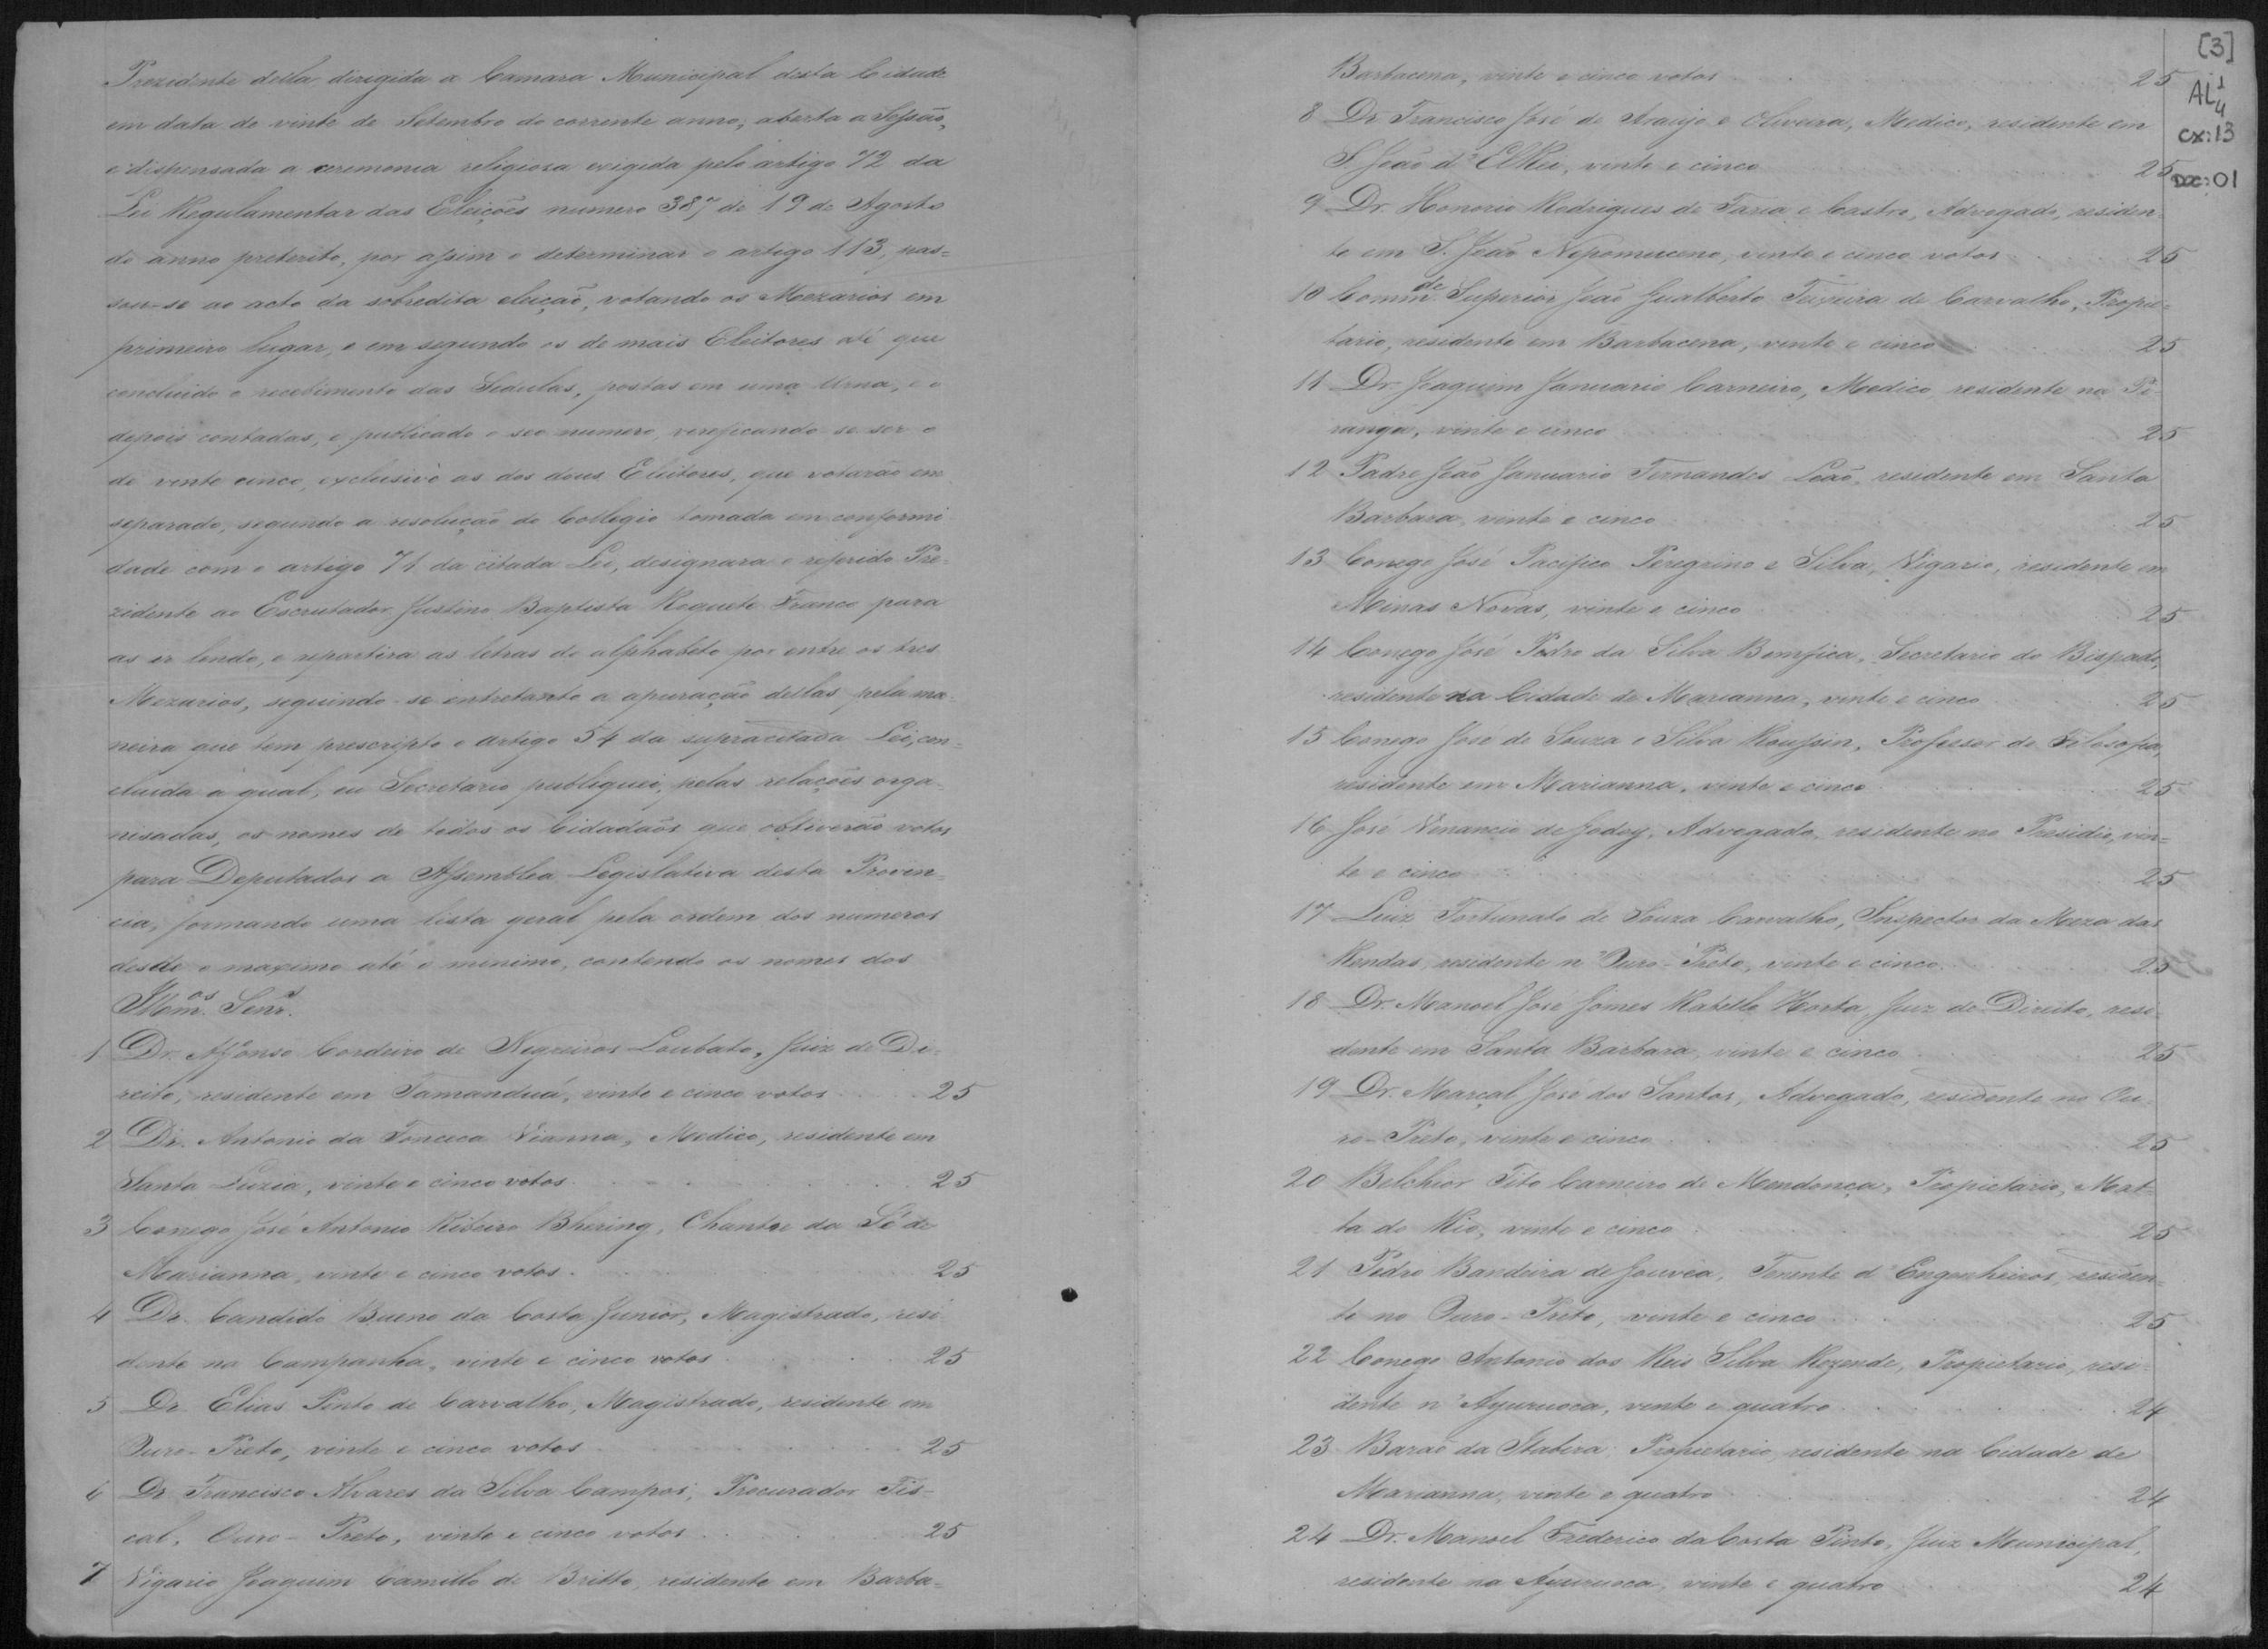 Prezidente della dirigida a Camara Municipal desta Cidade
em data de vinte de Setembro do corrente anno; aberta a Sessão,
e dispensada a ceremonia religiosa exigida pelo artigo 72 da
Lei Regulamentar das Eleições numero 387 de 19 de Agosto
do anno preterito, por assim o determinar o artigo 113, pas=
sou-se ao acto da sobredita eleição, votando os Mezarios em
primeiro lugar, e em segundo os de mais Eleitores até que
concluido o recebimento das Sedulas, postas em uma Urna, e o
depois contadas, e publicado o seo numero, verificando-se ser o
de vinte cinco, exclusivè as dos dous Eleitores, que votarão em
separado, segundo a resolução do Collegio tomada em conformi
dade com o artigo 71 da citada Lei, designara o referido Pre=
zidente ao Escrutador Justino Baptista Roquete Franco para
as ir lendo, e repartira as letras do alphabeto por entre os tres
Mezarios, seguindo-se entretanto a apuração dellas pela ma=
neira que tem prescripto o artigo 54 da supracitada Lei, con=
cluida a qual, eu Secretario publiquei, pelas relações orga=
nisadas, os nomes de todos os Cidadãos que obtiverão votos
para Deputados a Assemblea Legislativa desta Provin=
cia, formando uma lista geral pela ordem dos numeros
desde o maximo até o minimo, contendo os nomes dos
Illmos. Senrs.
1 Dr. Affonso Cordeiro de Negreiros Loubato, Juiz de Di=
reito, residente em Tamanduá, vinte e cinco votos 25
2 Dr. Antonio da Fonceca Vianna, Medico, residente em
Santa Luzia, vinte e cinco votos 25
3 Conego José Antonio Ribeiro Bhering, Chantre da Sé de
Marianna, vinte e cinco votos 25
4 Dr. Candido Bueno da Costa Junior, Magistrado, resi
dente na Campanha, vinte e cinco votos 25
5 Dr. Elias Pinto de Carvalho, Magistrado, residente em
Ouro-Preto, vinte e cinco votos 25
6 Dr Francisco Alvares da Silva Campos, Procurador Fis=
cal, Ouro-Preto, vinte e cinco votos 25
7 Vigario Joaquim Camillo de Britto, residente em Barba=
[3]
AL1
4
cx:13
DOC:01
Barbacena, vinte e cinco votos 25
8 Dr Francisco José de Araujo e Oliveira, Medico, residente em
S. João d'ElRei, vinte e cinco 25
9 Dr. Honorio Rodrigues de Faria e Castro, Advogado, residen=
te em S. João Nepomuceno, vinte e cinco votos 25
10 Comm.de Superior João Gualberto Teixeira de Carvalho, Propie=
tario, residente em Barbacena, vinte e cinco 25
11 Dr Joaquim Januario Carneiro, Medico residente na Pi=
ranga, vinte e cinco 25
12 Padre João Januario Fernandes Leão, residente em Santa
Barbara, vinte e cinco 25
13 Conego José Pacifico Peregrino e Silva, Vigario, residente em
Minas Novas, vinte e cinco 25
14 Conego José Pedro da Silva Bemfica, Secretario do Bispado,
residente na Cidade de Marianna, vinte e cinco 25
15 Conego José de Souza e Silva Roussin, Professor de Filosofia,
residente em Marianna, vinte e cinco 25
16 José Venancio de Godoy, Advogado, residente no Presidio, vin=
te e cinco 25
17 Luiz Fortunato de Souza Carvalho, Inspector da Meza das
Rendas, residente n'Ouro-Preto, vinte e cinco 25
18 Dr. Manoel José Gomes Rabello Horta, Juiz de Direito, resi=
dente em Santa Barbara, vinte e cinco 25
19 Dr. Marçal José dos Santos, Advogado, residente no Ou=
ro-Preto, vinte e cinco 25
20 Belchior Tito Carneiro de Mendonça, Propietario, Mat=
ta do Rio, vinte e cinco 25
21 Pedro Bandeira de Gouvêa, Tenente d'Engenheiros, residen=
te no Ouro-Preto, vinte e cinco 25
22 Conego Antonio dos Reis Silva Rezende, Propietario, resi=
dente n'Ayuruoca, vinte e quatro 24
23 Barão da Itabira Propietario, residente na Cidade de
Marianna, vinte e quatro 24
24 Dr. Manoel Frederico da Costa Pinto, Juiz Municipal,
residente na Ayuruoca, vinte e quatro 24